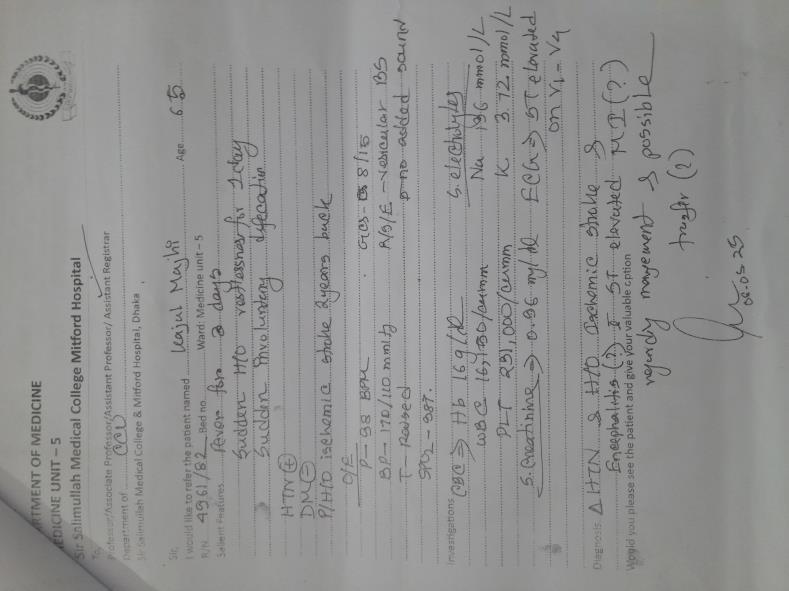 RTMENT OF MEDICINE
EDICINE UNIT – 5
Sir Salimullah Medical College Mitford Hospital
To,
Professor/Associate Professor/Assistant Professor/ Assistant Registrar
Department of CCU
Sir Salimullah Medical College & Mitford Hospital, Dhaka
Sir,
I would like to refer the patient named Kajul Majhi Age 65
R/N. 4961/82 Bed no. Ward: Medicine unit – 5
Salient Features. Fever for 2 days
Sudden H/O restlessness for 1 day
Sudden Involuntary defecation
HTN (+)
DM (–)
P/H/O ischemic stroke 2 years back
O/E
P – 98 BPM GCS – 8/15
BP – 170/110 mmHg R/S/E – vesicular BS
T – Raised no added sound
SPO2 – 98%.
Investigations CBC ⇒ Hb 16 g/dl S. electrolytes
WBC /cumm Na 136 mmol/L
PLT 231,000/cumm K 3.72 mmol/L
S. Creatinine ⇒ 0.96 mg/dl ECG ⇒ ST elevated
on V1 – V4
Diagnosis. Δ HTN & H/O Ischemic stroke &
Encephalitis (?) ST elevated MI (?)
Would you please see the patient and give your valuable option
management & possible
transfer (?)